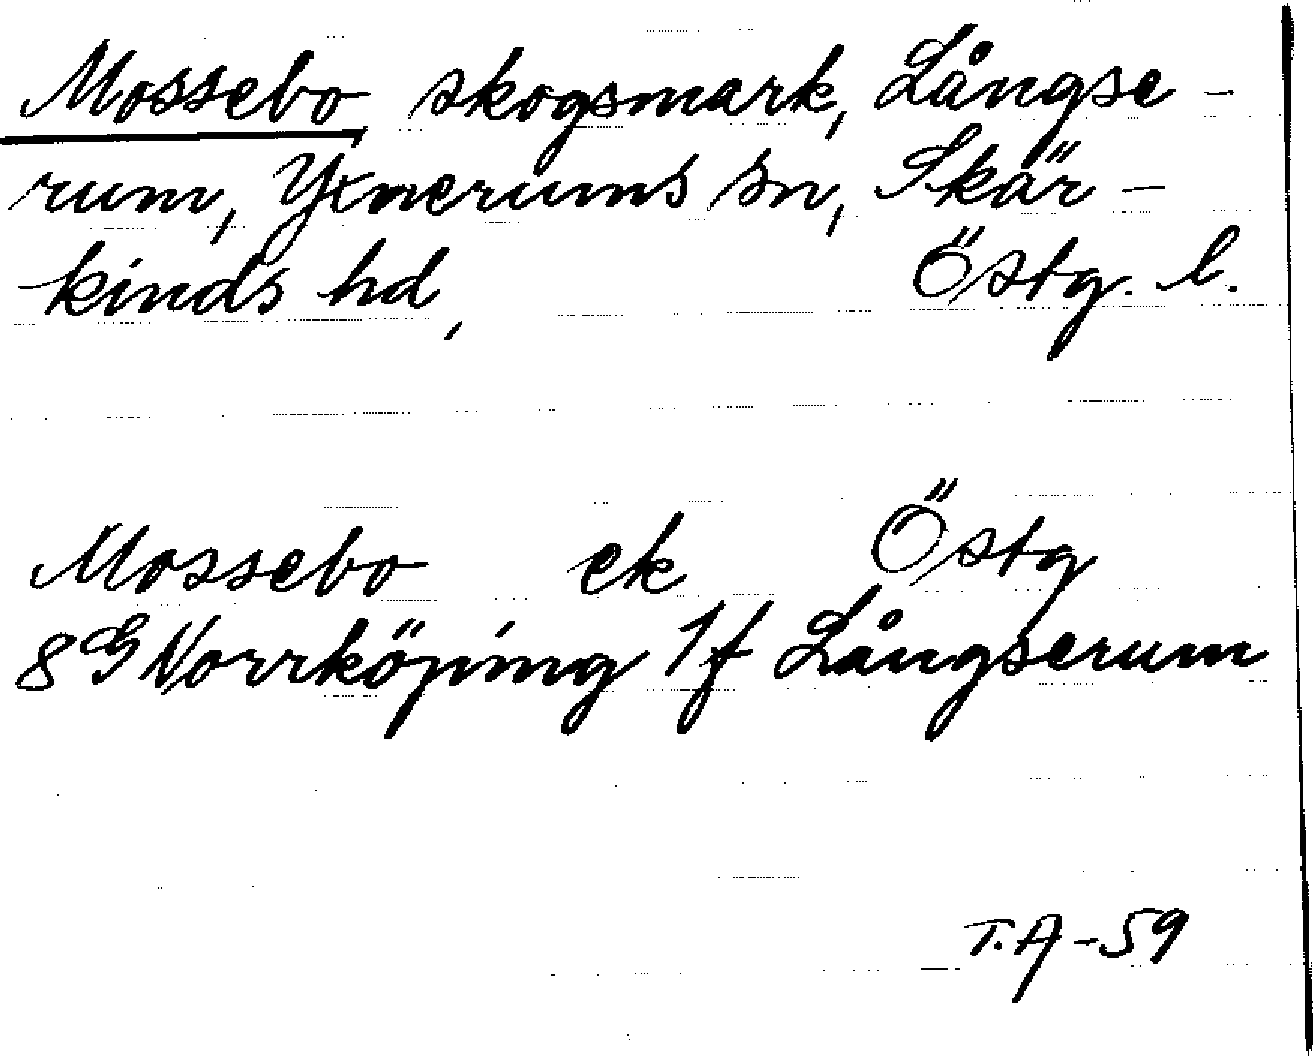 Mossebo skogsmark, Långse-
rum, Yxnerums sn, Skär-
kinds hd, Östg. l.
Mossebo ek Östg
8G Norrköping 1f Långserum
T.A-59